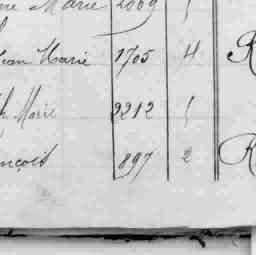 Marie 2009 1
Jean Marie 1705 4 R
h Marie 2212 1
ançois 897 2 R